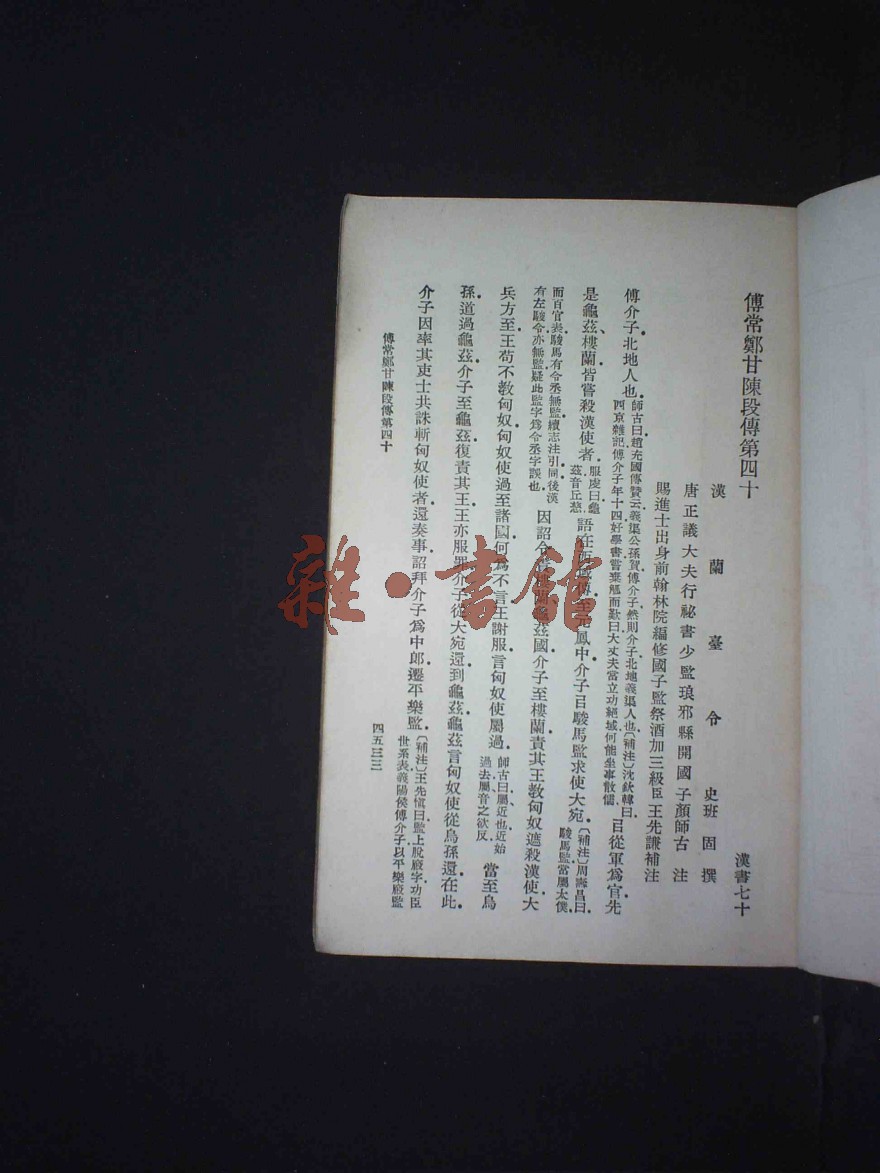 傅常鄭甘陳段傳第四十
漢書七十
漢蘭臺令史班固撰
唐正議大夫行祕書少監琅邪縣開國子顏師古注
賜進士出身前翰林院編修國子監祭酒加三級臣王先謙補注
傅介子北地人也。師古曰趙充國傳贊云義渠公孫賀傅介子然則介子北地義渠人也〔補注〕沈欽韓曰
西京雜記傅介子年十四好學書嘗棄觚而歎曰大丈夫當立功絕域何能坐事散儒 㠯從軍爲官先
是龜茲、樓蘭皆嘗殺漢使者。服虔曰龜
茲音丘慈 語在西域傳至元鳳中介子㠯駿馬監求使大宛。〔補注〕周壽昌曰
駿馬監當屬太僕
而百官表駿馬有令丞無監續志注引同後漢
有左駿令亦無監疑此監字爲令丞字誤也 因詔令責樓蘭龜茲國介子至樓蘭責其王教匈奴遮殺漢使大
兵方至王苟不教匈奴匈奴使過至諸國何爲不言王謝服言匈奴使屬過。師古曰屬近也近始
過去屬音之欲反 當至烏
孫道過龜茲介子至龜茲復責其王王亦服罪介子從大宛還到龜茲龜茲言匈奴使從烏孫還在此
介子因率其吏士共誅斬匈奴使者還奏事詔拜介子爲中郎遷平樂監。〔補注〕王先愼曰監上脫廄字功臣
世系表義陽侯傅介子以平樂廄監
傅常鄭甘陳段傳第四十
四五三三
雜·書館